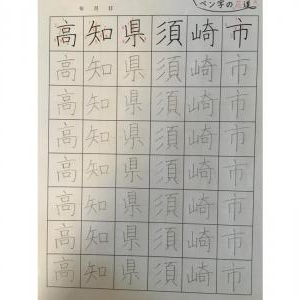 ペン字の道
年月日
高知県須崎市
高知県須崎市
高知県須崎市
高知県須崎市
高知県須崎市
高知県須崎市
高知県須崎市
高知県須崎市